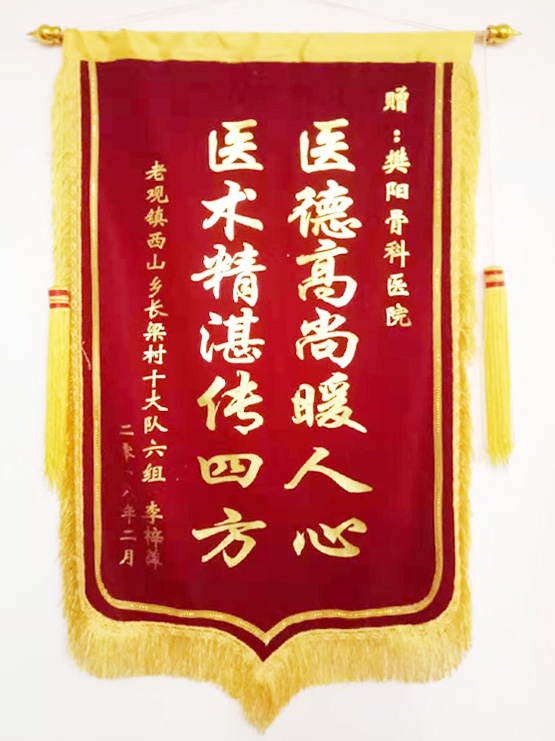 赠：樊阳骨科医院
医德高尚暖人心
医术精湛传四方
老观镇西山乡长梁村十大队六组 李梓萍
二零一八年二月